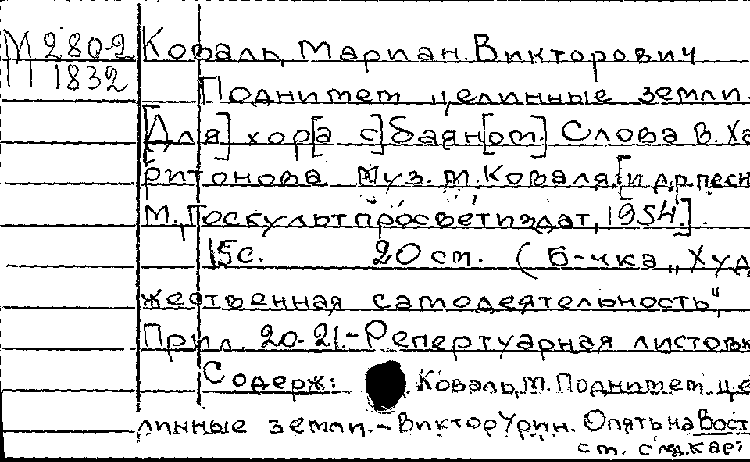 М 280-2 Коваль, Мариан Викторович
П 1832
Поднимем целинные земли.
[Для] хор[а с] баян[ом.] Слова В. Ха
ритонова Муз. М. Коваля. [и др. песн
М., Госкультпросветиздат, 1954.]
15 с. 20 см. (Б-чка „Худ
жественная самодеятельность",
Прил. 20-21.-Репертуарная листовк
Содерж: Коваль, М. Поднимем це
линные земли. - Виктор Урин. Опять на Вост
см. след. кар